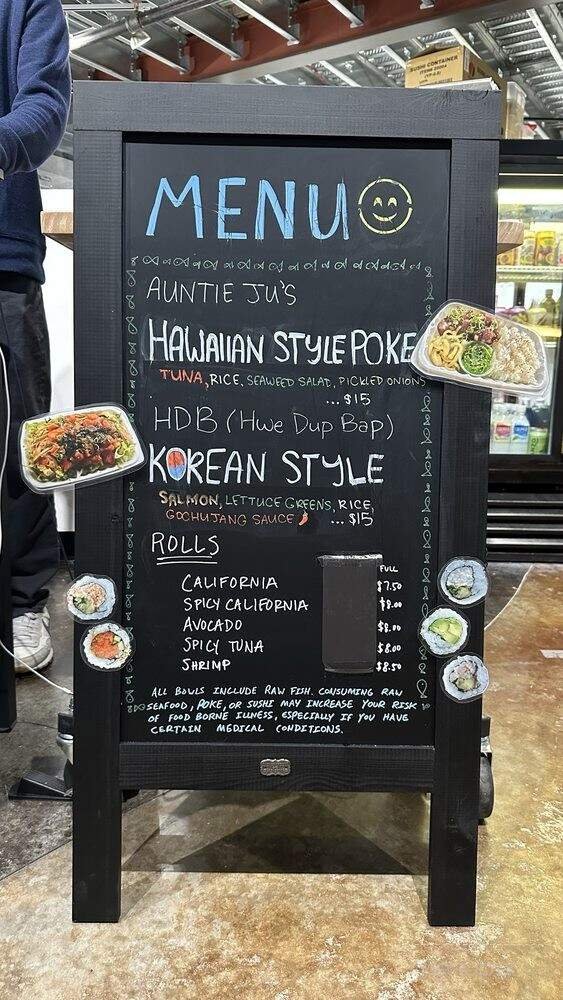 SUSHI CONTAINER
MENU
AUNTIE JU'S
HAWAIIAN STYLE POKE
TUNA, RICE, SEAWEED SALAD, PICKLED ONIONS
... $15
HDB (Hwe Dup Bap)
KOREAN STYLE
SALMON, LETTUCE GREENS, RICE,
GOCHUJANG SAUCE ... $15
ROLLS
FULL
CALIFORNIA $7.50
SPICY CALIFORNIA $8.00
AVOCADO $8.00
SPICY TUNA $8.00
SHRIMP $8.50
ALL BOWLS INCLUDE RAW FISH. CONSUMING RAW
SEAFOOD, POKE, OR SUSHI MAY INCREASE YOUR RISK
OF FOOD BORNE ILLNESS, ESPECIALLY IF YOU HAVE
CERTAIN MEDICAL CONDITIONS.